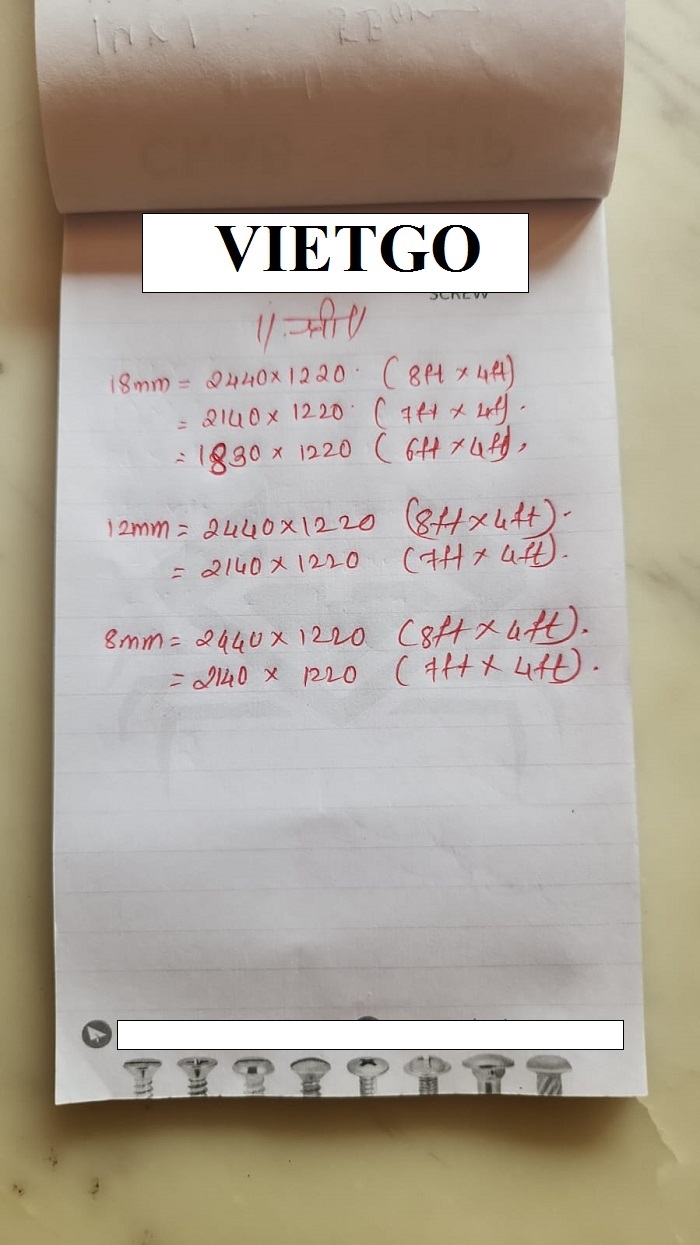 VIETGO
SCREW
॥ श्री ॥
18mm = 2440 x 1220 (8ft x 4ft)
= 2140 x 1220 (7ft x 4ft).
= 1830 x 1220 (6ft x 4ft),
12mm = 2440 x 1220 (8ft x 4ft).
= 2140 x 1220 (7ft x 4ft).
8mm = 2440 x 1220 (8ft x 4ft).
= 2140 x 1220 (7ft x 4ft).